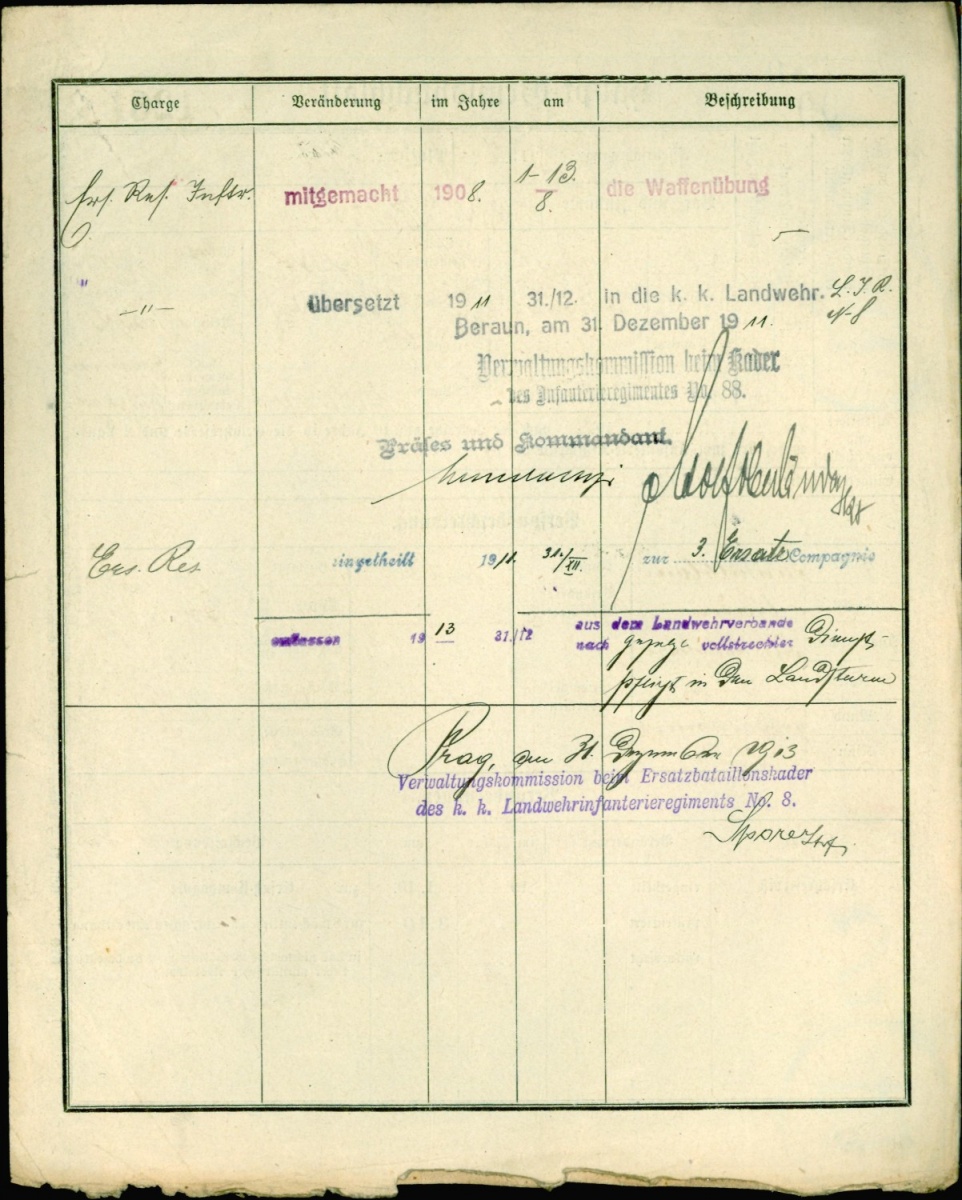 Charge Veränderung im Jahre am Beschreibung
Ers. Res. Inftr. mitgemacht 1908. 1-13./8. die Waffenübung
" —"— übersetzt 1911 31./12. in die k. k. Landwehr. L. I. R.
N-8
Beraun, am 31. Dezember 1911.
Verwaltungskommission beim Kader
des Infanterieregimentes No. 88.
Präses und Kommandant.
Ers. Res eingetheilt 1911. 31./XII. zur 3. Ersatz Compagnie
entlassen 1913 31./12 aus dem Landwehrverbande
nach gesetzl vollstreckter Dienst-
pflicht in den Landsturm
Prag, am 31. Dezember 1913
Verwaltungskommission beim Ersatzbataillonskader
des k. k. Landwehrinfanterieregiments No. 8.